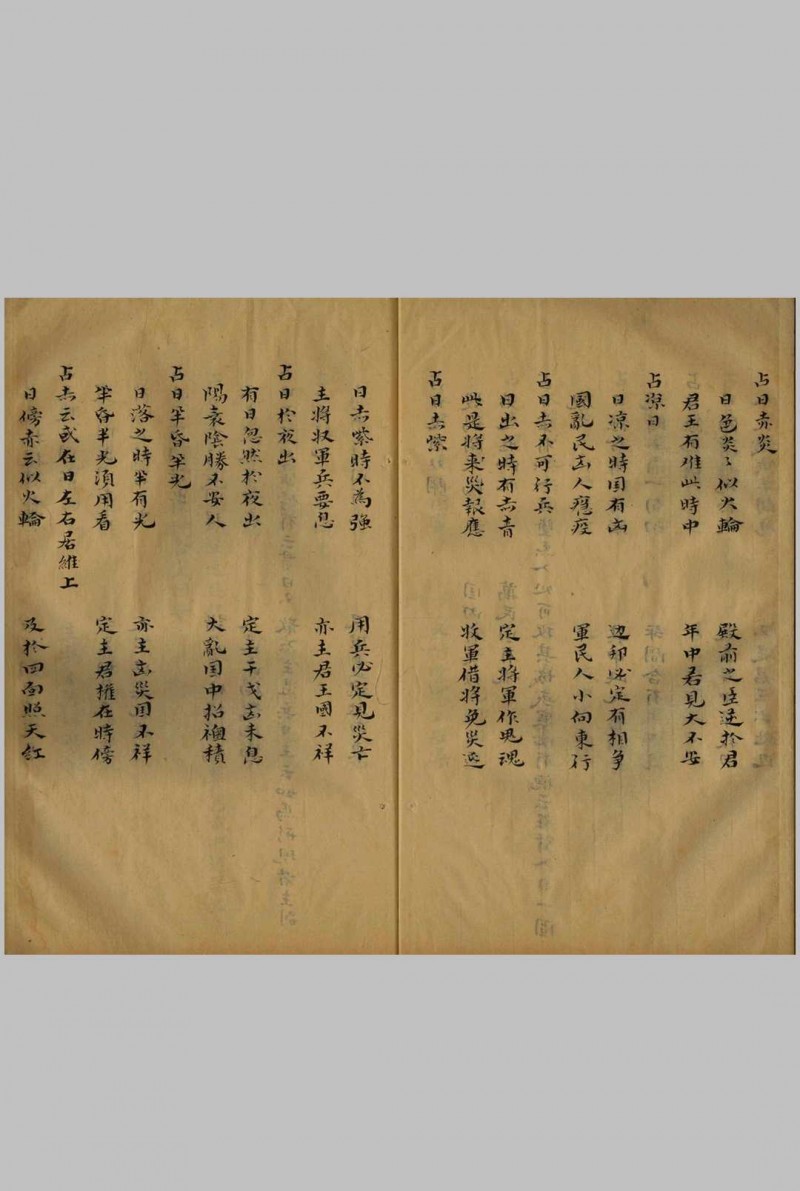 占日赤炎
日色炎〻似火輪　殿前之臣逆於君
君王有难此時中　年中若見大不安
占凉日
日凉之時国有凶　邊邦必定有相争
國亂民凶人瘟疫　軍民人小向東行
占日赤不可行兵
日出之時有赤青　定主將軍作鬼魂
此是將来災報應　收軍借將免災迍
占日赤紫
日赤紫時不為強　用兵必定見災亡
主將收軍兵要息　亦主君王國不祥
占日於夜出
有日忽然於夜出　定主干戈凶未息
陽衰陰勝不安人　大亂国中招禍積
占日半昏半光
日落之時半有光　亦主凶災国不祥
半昏半光須用看　定主君權在時傍
占赤云或在日左右居維上
日傍赤云似火輪　及於四面照天紅